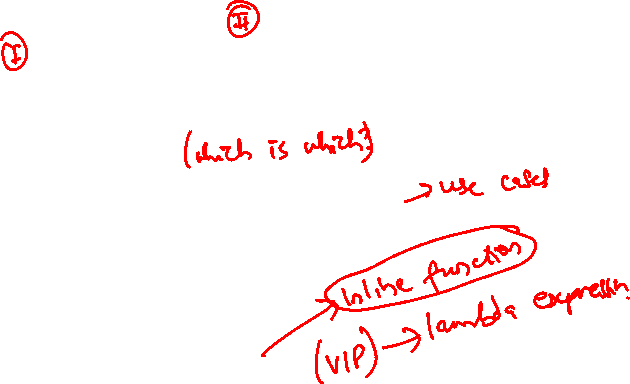 II
I
(which is which?)
→ use cases
inline function
(VIP) → lambda expressin